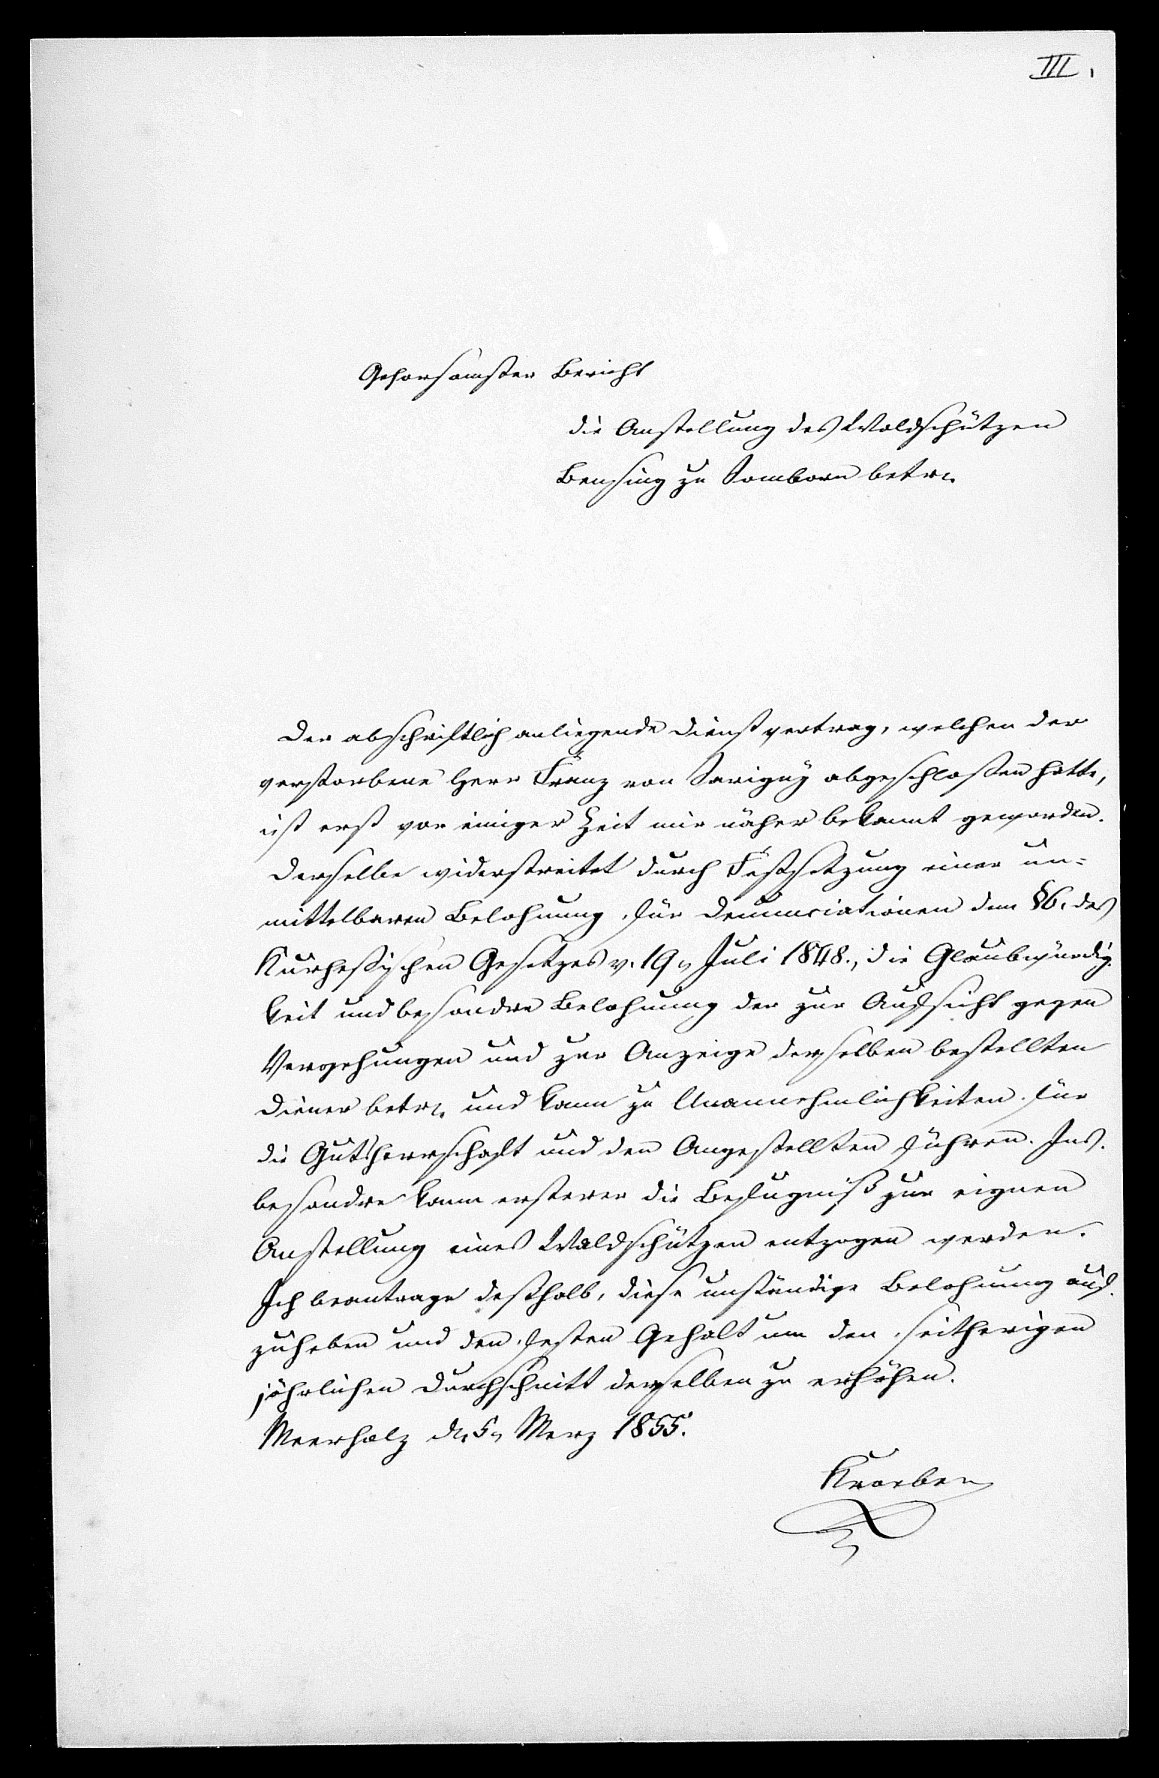 III.
Gehorsamster Bericht
die Anstellung des Waldschützen
Bensing zu Somborn betr.
Der abschriftlich anliegende Dienstvertrag, welchen der
verstorbene Herr Franz von Savigny abgeschloßen hatte,
ist erst vor einiger Zeit mir näher bekannt geworden.
Derselbe widerstreitet durch Festsetzung einer un=
mittelbaren Belohnung für Denunciationen dem §6. des
Kurheßischen Gesetzes v. 19n Juli 1848., die Glaubwürdig-
keit und besondre Belohnung der zur Aufsicht gegen
Vergehungen und zur Anzeige derselben bestellten
Diener betr. und kann zu Unannehmlichkeiten für
die Gutsherrschaft und den Angestellten führen. Ins-
besondre kann ersterer die Befugniß zur eignen
Anstellung eines Waldschützen entzogen werden.
Ich beantrage deßhalb, diese unständige Belohnung auf-
zuheben und den festen Gehalt um den seitherigen
jährlichen Durchschnitt derselben zu erhöhen.
Meerholz d. 5n Merz 1855.